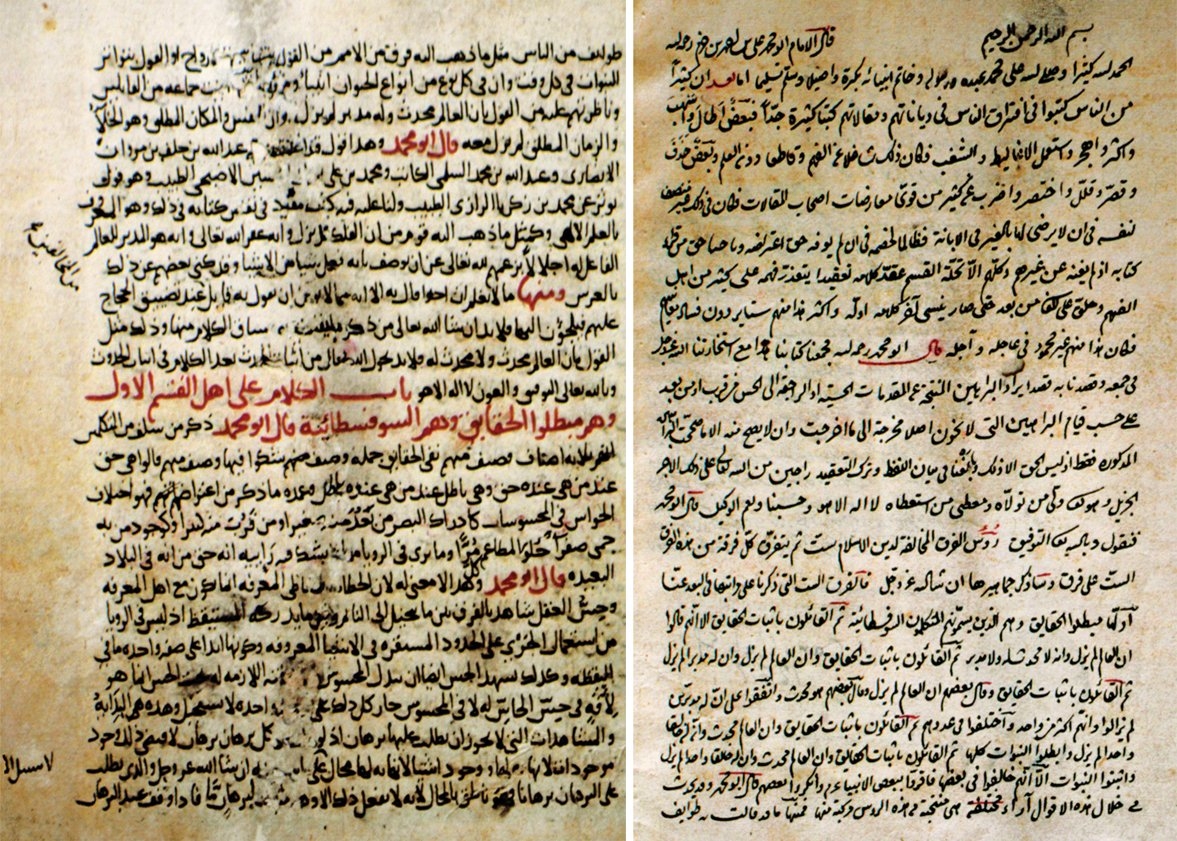 بسم الله الرحمن الرحيم قال الامام ابو محمد علي بن احمد بن حزم رحمه الله
الحمد لله كثيرا وصلى الله على محمد عبده ورسوله وخاتم انبيائه بكرة واصيلا وسلم تسليما اما بعد فان كثيرا
من الناس كتبوا في افتراق الناس في دياناتهم ومقالاتهم كتبا كثيرة جدا فبعض اطال واسهب
واكثر واهجر واستعمل الاغاليط والشغب فكان ذلك شاغلا عن الفهم وقاطعا دون العلم وبعض حذف
وقصر وقلل واختصر واضرب عن كثير من قوي معارضات اصحاب المقالات فكان في ذلك غير منصف
لنفسه في ان لا يرضى لها بالغبن في الابانة ظالما لخصمه في ان لم يوفه حق اعتراضه وباخسا حق من قرأ
كتابه اذ لم يغنه عن غيره وكلهم الا تحلة القسم عقد كلامه تعقيدا يتعذر فهمه على كثير من اهل
الفهم وحلق على المعاني من بعد حتى صار ينسي آخر كلامه اوله واكثر هذا منهم ستاير دون فساد معانيهم
فكان هذا منهم غير محمود في عاجله وآجله قال ابو محمد رحمه الله فجمعنا كتابنا هذا مع استخارتنا الله عز وجل
في جمعه وقصدنا به قصد ايراد البراهين المنتجة عن المقدمات الحسية او الراجعة الى الحس من قرب او من بعد
على حسب قيام البراهين التي لا تخون اصلا مخرجة الى ما اخرجت وان لا يصح منه الا ما صححت البراهين
المذكورة فقط اذ ليس الحق الا ذلك وبالغنا في بيان اللفظ وترك التعقيد راجين من الله تعالى على ذلك الاجر
الجزيل وهو تعالى ولي من تولاه ومعطي من استعطاه لا اله الا هو وحسبنا ونعم الوكيل قال ابو محمد
فنقول وبالله تعالى التوفيق رؤس الفرق المخالفة لدين الاسلام ست ثم يتفرق كل فرقة من هذه الفرق
الست على فرق وساذكر جماهيرها ان شاء الله عز وجل فالفرق الست التي ذكرنا على مراتبها في البعد عنا
اولها مبطلوا الحقايق وهم الذين يسميهم المتكلمون السوفسطائية ثم القائلون باثبات الحقايق الا انهم قالوا
ان العالم لم يزل وانه لا محدث له ولا مدبر ثم القائلون باثبات الحقايق وان العالم لم يزل وان له مدبرا لم يزل
ثم القائلون باثبات الحقايق وقال بعضهم ان العالم لم يزل وقال بعضهم هو محدث واتفقوا على ان له مدبرين
لم يزالوا وانهم اكثر من واحد واختلفوا في عددهم ثم القائلون باثبات الحقايق وان العالم محدث وان له خالقا
واحدا لم يزل وابطلوا النبوات كلها ثم القائلون باثبات الحقايق وان العالم محدث وان له خالقا واحدا لم يزل
واثبتوا النبوات الا انهم خالفوا في بعضها فاقروا ببعض الانبياء وانكروا بعضهم قال ابو محمد وقد يحدث
في خلال هذه الاقوال آراء مختلفة هي منتجة من هذه الرؤس مركبة منها فمنها ما قد قالت به طوايف
طوايف من الناس مثل ما ذهب اليه فرق من الامم من القول بتناسخ الارواح او القول بتواتر
النبوات في كل وقت وان في كل نوع من انواع الحيوان انبياء ومثل جماعة من القايلين
وناظرتهم عليه من القول بان العالم محدث وله مدبر لم يزل وان النفس والمكان المطلق وهو الخلاء
والزمان المطلق لم يزل معه قال ابو محمد وهذا قول قد عبد الله بن خلف بن مروان
الانصاري وعبد الله بن محمد السلمي الكاتب ومحمد بن علي الاصبحي الطبيب وهو قول
يؤثر عن محمد بن زكريا الرازي الطبيب ولنا عليه فيه كتاب مفرد في نقض كتابه في ذلك وهو المعروف
بالعلم الالهي وكمثل ما ذهب اليه قوم من ان الفلك لم يزل وانه غير الله تعالى وانه هو المدبر للعالم
الفاعل له اجلالا بزعمهم لله تعالى عن ان يوصف بانه فعل شيا من الاشيا وقد كنى بعضهم عن ذلك
بالعرش ومنها ما لا نعلم ان احدا قال به الا انه مما لا يؤمن ان يقول به قايل عند تضييق الحجاج
عليهم فيلجؤن اليها فلا بد ان شا الله تعالى من ذكر سياق الكلام منها وذلك مثل
القول بان العالم محدث ولا محدث له فلا بد بحول الله تعالى من اثبات المحدث بعد الكلام في اثبات الحدوث
وبالله تعالى التوفيق والعون لا اله الا هو باب الكلام على اهل القسم الاول
وهم مبطلوا الحقايق وهم السوفسطائية قال ابو محمد ذكر من سلف من المتكلمين
انهم ثلاثة اصناف فصنف منهم نفى الحقايق جملة وصنف منهم شكوا فيها وصنف منهم قالوا هي حق
عند من هي عنده حق وهي باطل عند من هي عنده باطل وعمدة ما ذكر من اعتراضهم فهو اختلاف
الحواس في المحسوسات كادراك البصر من بعد عنه صغيرا ومن قرب منه كبيرا وكوجود من به
حمى صفرا حلو المطاعم مرا وما يرى في الرويا مما لا يشك فيه رائيه انه حق من انه في البلاد
البعيدة قال ابو محمد وكل هذا لا معنى له لان الخطاب وتعاطي المعرفة انما يكون مع اهل المعرفة
وحس العقل شاهد بالفرق بين ما يخيل الى النايم وبين ما يدركه المستيقظ اذ ليس في الرويا
من استعمال الجري على الحدود المستقرة في الاشيا المعروفة وكونها ابدا على صفة واحدة ما في
اليقظة وكذلك يشهد الحس ايضا ان تبدل المحسوس اللازمة له تحت الحس انما هو
لافة في حس الحاس له لا في المحسوس جار كل ذلك على واحدة لا تستحيل وهذه هي البداية
والمشاهدات التي لا يجوز ان يطلب عليها برهان اذ لو كل برهان برهان لاقتضى ذلك وجود
موجودات لا نهاية لها ووجود اشيا لا نهاية لها محال على ان شا الله عز وجل والذي يطلب
على البرهان برهانا فهو ناطق بالمحال لانه لا يفعل ذلك الا وهو لبرهان ما فاذا وقف عند البرهان